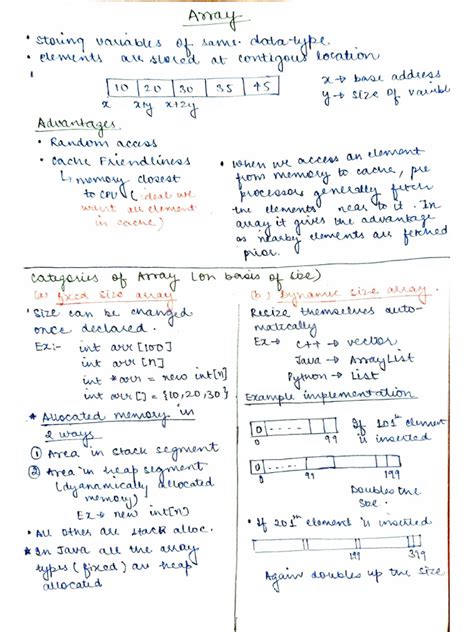 Array
• Storing variables of same data-type
• elements are stored at contigous location
10 20 30 35 45
x x+y x+2y
x → base address
y → size of variabl
Advantages
• Random access
• Cache Friendliness
↳ memory closest
to CPU ( ideal we
want all element
in cache)
• When we access an element
from memory to cache, pre
processors generally fetch
the elements near to it. In
array it gives the advantage
as nearby elements are fetched
prior.
Categories of Array (on basis of size)
(a) fixed size array
• Size can be changed
once declared.
Ex:- int arr [100]
int arr [n]
int *arr = new int[n]
int arr [] = {10,20,30}
* Allocated memory in
2 ways
① Area in stack segment
② Area in heap segment
(dyanamically allocated
memory)
Ex → new int[n]
• All other are stack alloc.
* In Java all the array
types (fixed) are heap
allocated
(b) Dynamic size array.
Resize themselves auto-
matically
Ex → C++ → vector
Java → ArrayList
Python → List
Example implementation
0 99
If 101th element
is inserted
0 99 199
Doubles the
size.
• If 201th element is inserted
199 399
Again doubles up the size